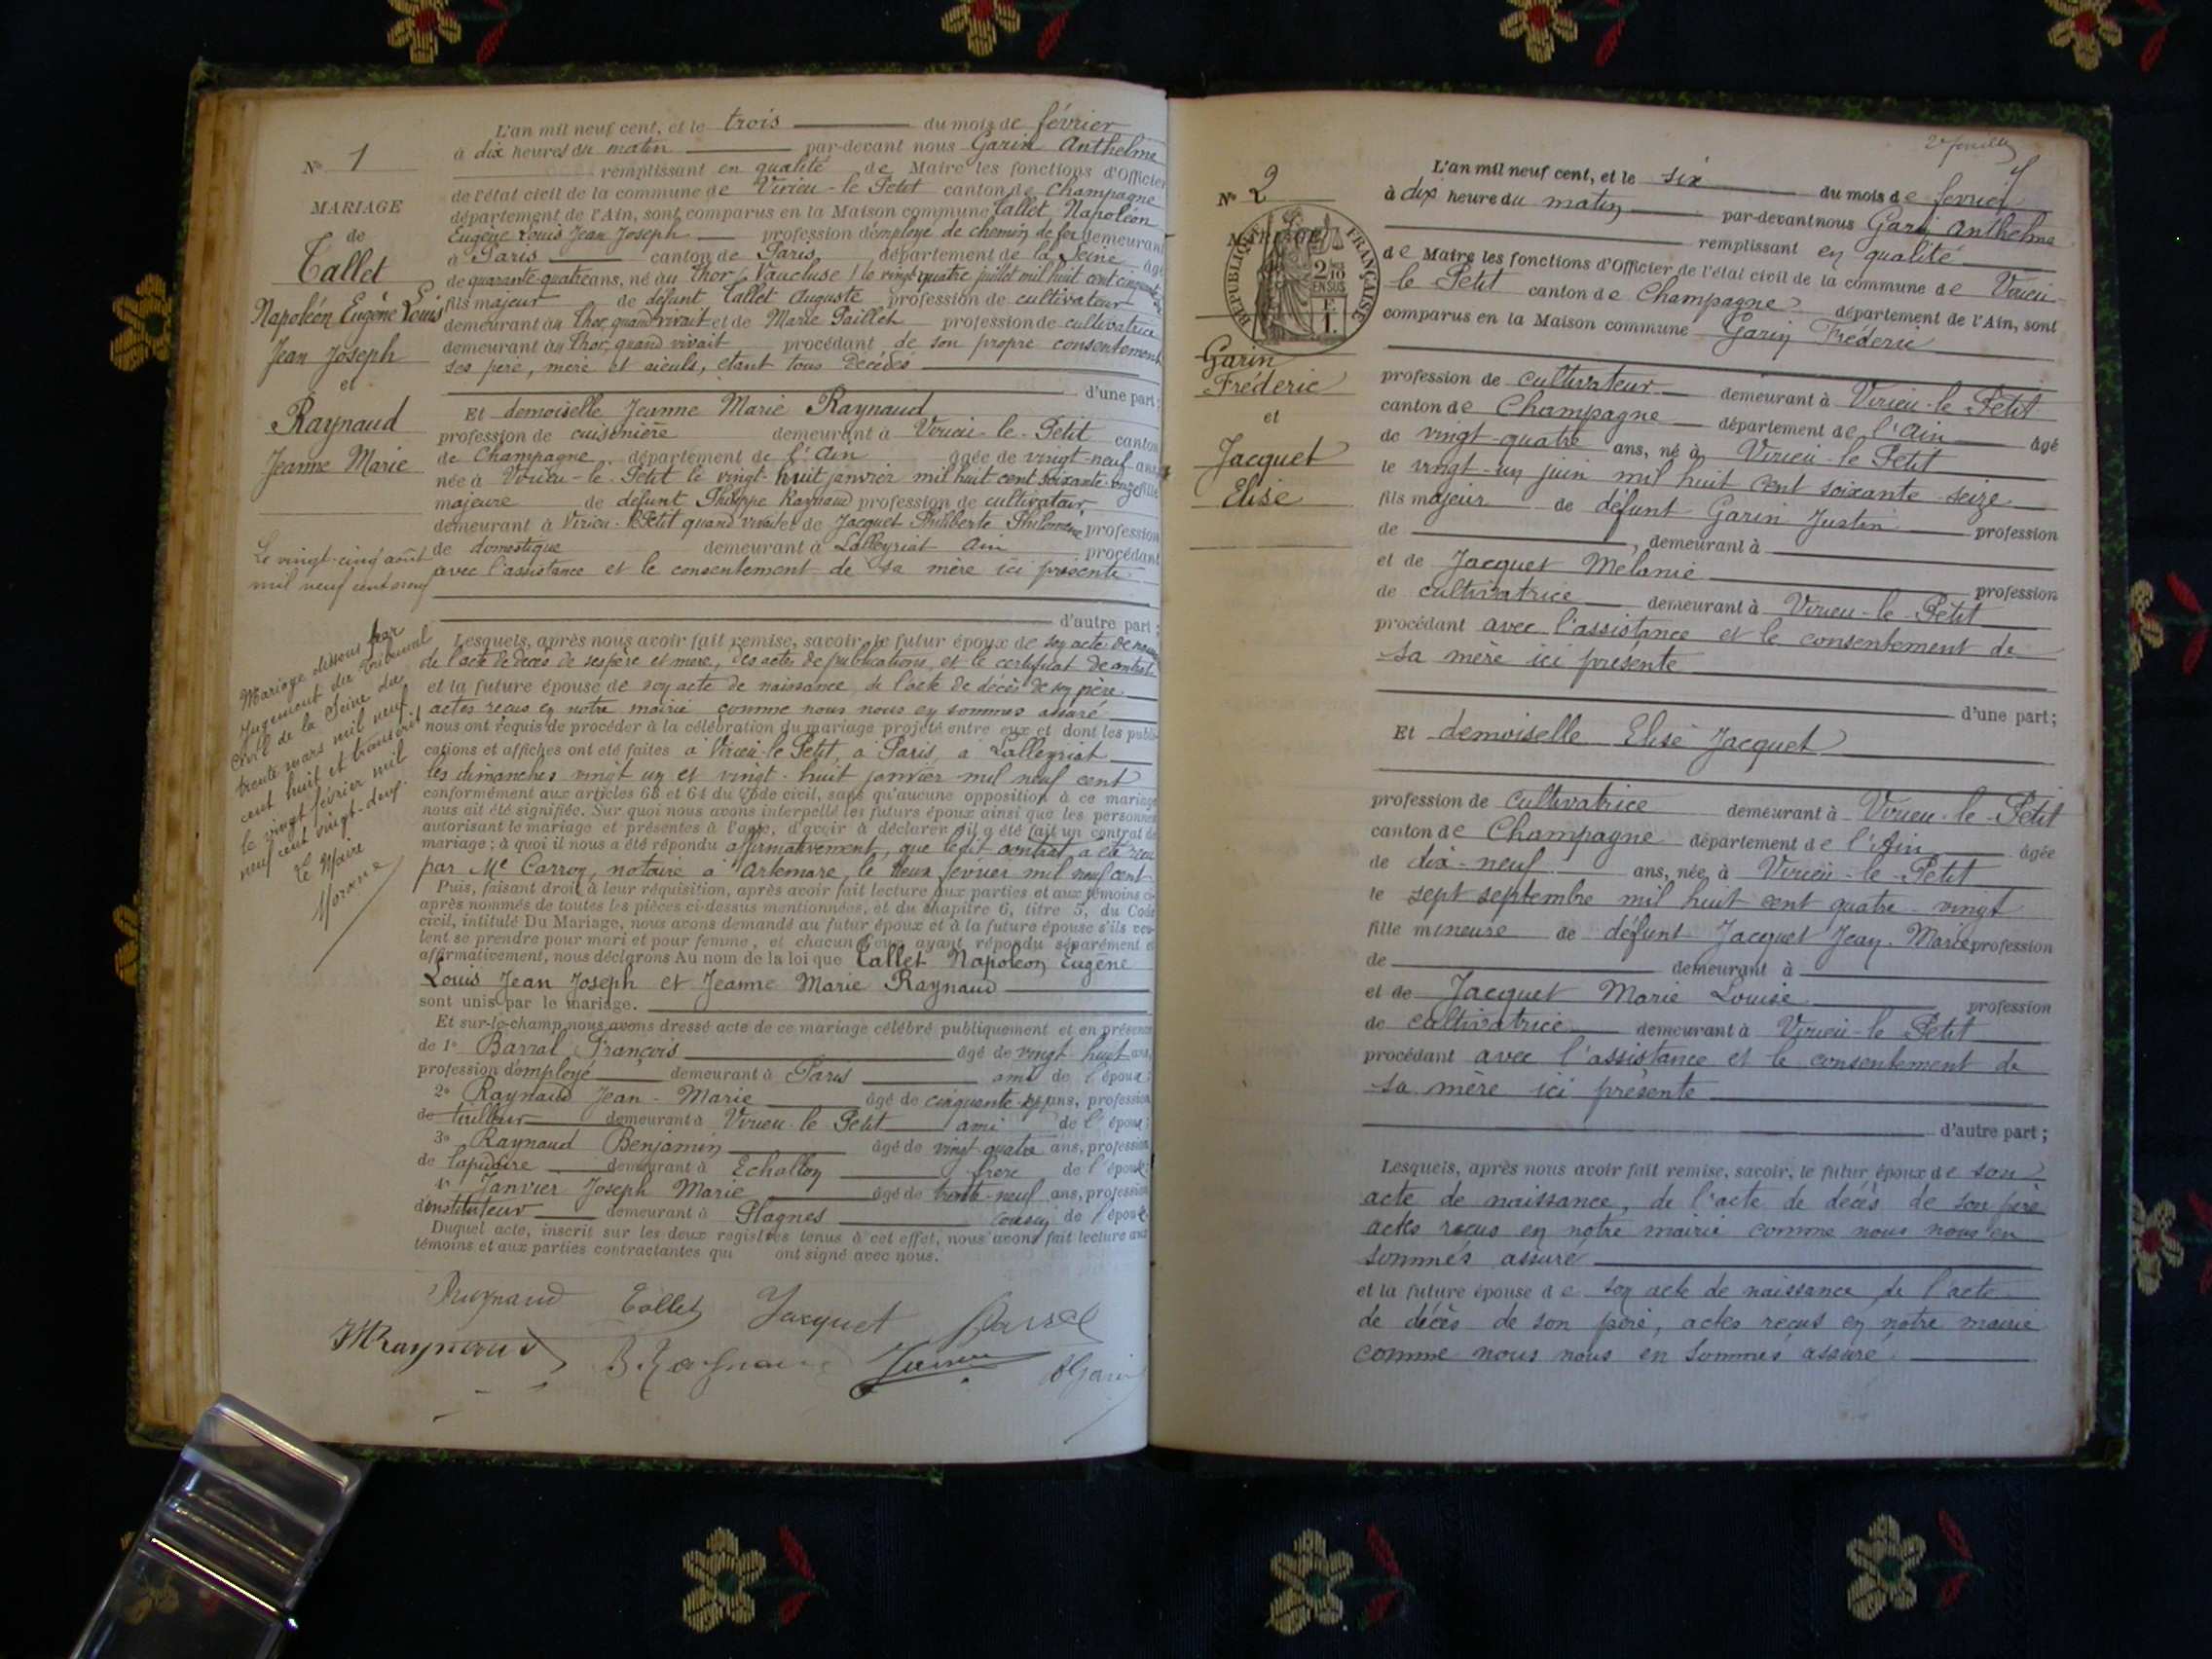 N° 1
MARIAGE
de
Tallet
Napoléon Eugène Louis
Jean Joseph
et
Raynaud
Jeanne Marie
Le vingt-cinq août
mil neuf cent
Mariage dissous par
jugement du Tribunal
Civil de la Seine du
trente mars mil neuf
cent huit et transcrit
le vingt février mil
neuf cent vingt-deux.
Le Maire
L'an mil neuf cent, et le trois du mois de février
à dix heures du matin par-devant nous Garin Anthelme
remplissant en qualité de Maire les fonctions d'Officier
de l'état civil de la commune de Virieu-le-Petit canton de Champagne
département de l'Ain, sont comparus en la Maison commune Tallet Napoléon
Eugène Louis Jean Joseph profession d'employé de chemin de fer demeurant
à Paris canton de Paris département de la Seine âgé
de quarante-quatre ans, né au Thor (Vaucluse) le vingt quatre juillet mil huit cent cinquante
fils majeur de défunt Tallet Auguste profession de cultivateur
demeurant au Thor, quand vivait et de Marie Paillet profession de cultivatrice
demeurant au Thor, quand vivait procédant de son propre consentement
ses père, mère et aieuls, étant tous décédés
d'une part;
Et demoiselle Jeanne Marie Raynaud
profession de cuisinière demeurant à Virieu-le-Petit canton
de Champagne département de l'Ain âgée de vingt-neuf ans
née à Virieu-le-Petit le vingt-huit janvier mil huit cent soixante-onze fille
majeure de défunt Philippe Raynaud profession de cultivateur,
demeurant à Virieu-le-Petit quand vivait et de Jacquet Philiberte Philomène profession
de domestique demeurant à Lalleyriat Ain procédant
avec l'assistance et le consentement de sa mère ici présente
d'autre part;
Lesquels, après nous avoir fait remise, savoir, le futur époux de son acte de
de l'acte de décès de ses père et mère, des actes de publications, et le certificat de contrat
et la future épouse de son acte de naissance, de l'acte de décès de son père.
actes reçus en notre mairie comme nous nous en sommes assuré
nous ont requis de procéder à la célébration du mariage projeté entre eux et dont les publi-
cations et affiches ont été faites à Virieu-le-Petit, à Paris, à Lalleyriat
les dimanches vingt un et vingt-huit janvier mil neuf cent
conformément aux articles 63 et 64 du Code civil, sans qu'aucune opposition à ce mariage
nous ait été signifiée. Sur quoi nous avons interpellé les futurs époux ainsi que les personnes
autorisant le mariage et présentes à l'acte, d'avoir à déclarer s'il a été fait un contrat de
mariage; à quoi il nous a été répondu affirmativement, que ledit contrat a été reçu
par Me Carron, notaire à Artemare, le deux février mil neuf cent
Puis, faisant droit à leur réquisition, après avoir fait lecture aux parties et aux témoins ci-
après nommés de toutes les pièces ci-dessus mentionnées, et du chapitre 6, titre 5, du Code
civil, intitulé Du Mariage, nous avons demandé au futur époux et à la future épouse s'ils veu-
lent se prendre pour mari et pour femme, et chacun d'eux ayant répondu séparément et
affirmativement, nous déclarons Au nom de la loi que Tallet Napoléon Eugène
Louis Jean Joseph et Jeanne Marie Raynaud
sont unis par le mariage.
Et sur-le-champ nous avons dressé acte de ce mariage célébré publiquement et en présence
de 1° Barral François âgé de vingt huit ans,
profession d'employé demeurant à Paris ami de l'époux;
2° Raynaud Jean-Marie âgé de cinquante ans, profession
de tailleur demeurant à Virieu-le-Petit ami de l'époux;
3° Raynaud Benjamin âgé de vingt-quatre ans, profession
de lapidaire demeurant à Echallon frère de l'épouse;
4° Janvier Joseph Marie âgé de trente-neuf ans, profession
d'instituteur demeurant à Plagnes cousin de l'épouse
Duquel acte, inscrit sur les deux registres tenus à cet effet, nous avons fait lecture aux
témoins et aux parties contractantes qui ont signé avec nous.
Raynaud Tallet Jacquet Barral
JMRaynaud B Raynaud Janvier AGarin
2e feuillet
N° 2
MARIAGE
RÉPUBLIQUE FRANÇAISE
2/10 EN SUS
Garin
Fréderic
et
Jacquet
Elise
L'an mil neuf cent, et le six du mois de février
à dix heure du matin par-devant nous Garin Anthelme
remplissant en qualité
de Maire les fonctions d'Officier de l'état civil de la commune de Virieu-
le Petit canton de Champagne département de l'Ain, sont
comparus en la Maison commune Garin Fréderic
profession de cultivateur demeurant à Virieu-le-Petit
canton de Champagne département de l'Ain âgé
de vingt-quatre ans, né à Virieu-le-Petit
le vingt-un juin mil huit cent soixante-seize
fils majeur de défunt Garin Justin profession
de , demeurant à
et de Jacquet Mélanie profession
de cultivatrice demeurant à Virieu-le-Petit
procédant avec l'assistance et le consentement de
sa mère ici présente
d'une part;
Et demoiselle Elise Jacquet
profession de cultivatrice demeurant à Virieu-le-Petit
canton de Champagne département de l'Ain âgée
de dix-neuf ans, née à Virieu-le-Petit
le sept septembre mil huit cent quatre-vingt
fille mineure de défunt Jacquet Jean-Marie profession
de demeurant à
et de Jacquet Marie Louise profession
de cultivatrice demeurant à Virieu-le-Petit
procédant avec l'assistance et le consentement de
sa mère ici présente
d'autre part;
Lesquels, après nous avoir fait remise, savoir, le futur époux de son
acte de naissance, de l'acte de décès de son père
actes reçus en notre mairie comme nous nous en
sommes assuré
et la future épouse de son acte de naissance, de l'acte
de décès de son père, actes reçus en notre mairie
comme nous nous en sommes assuré.